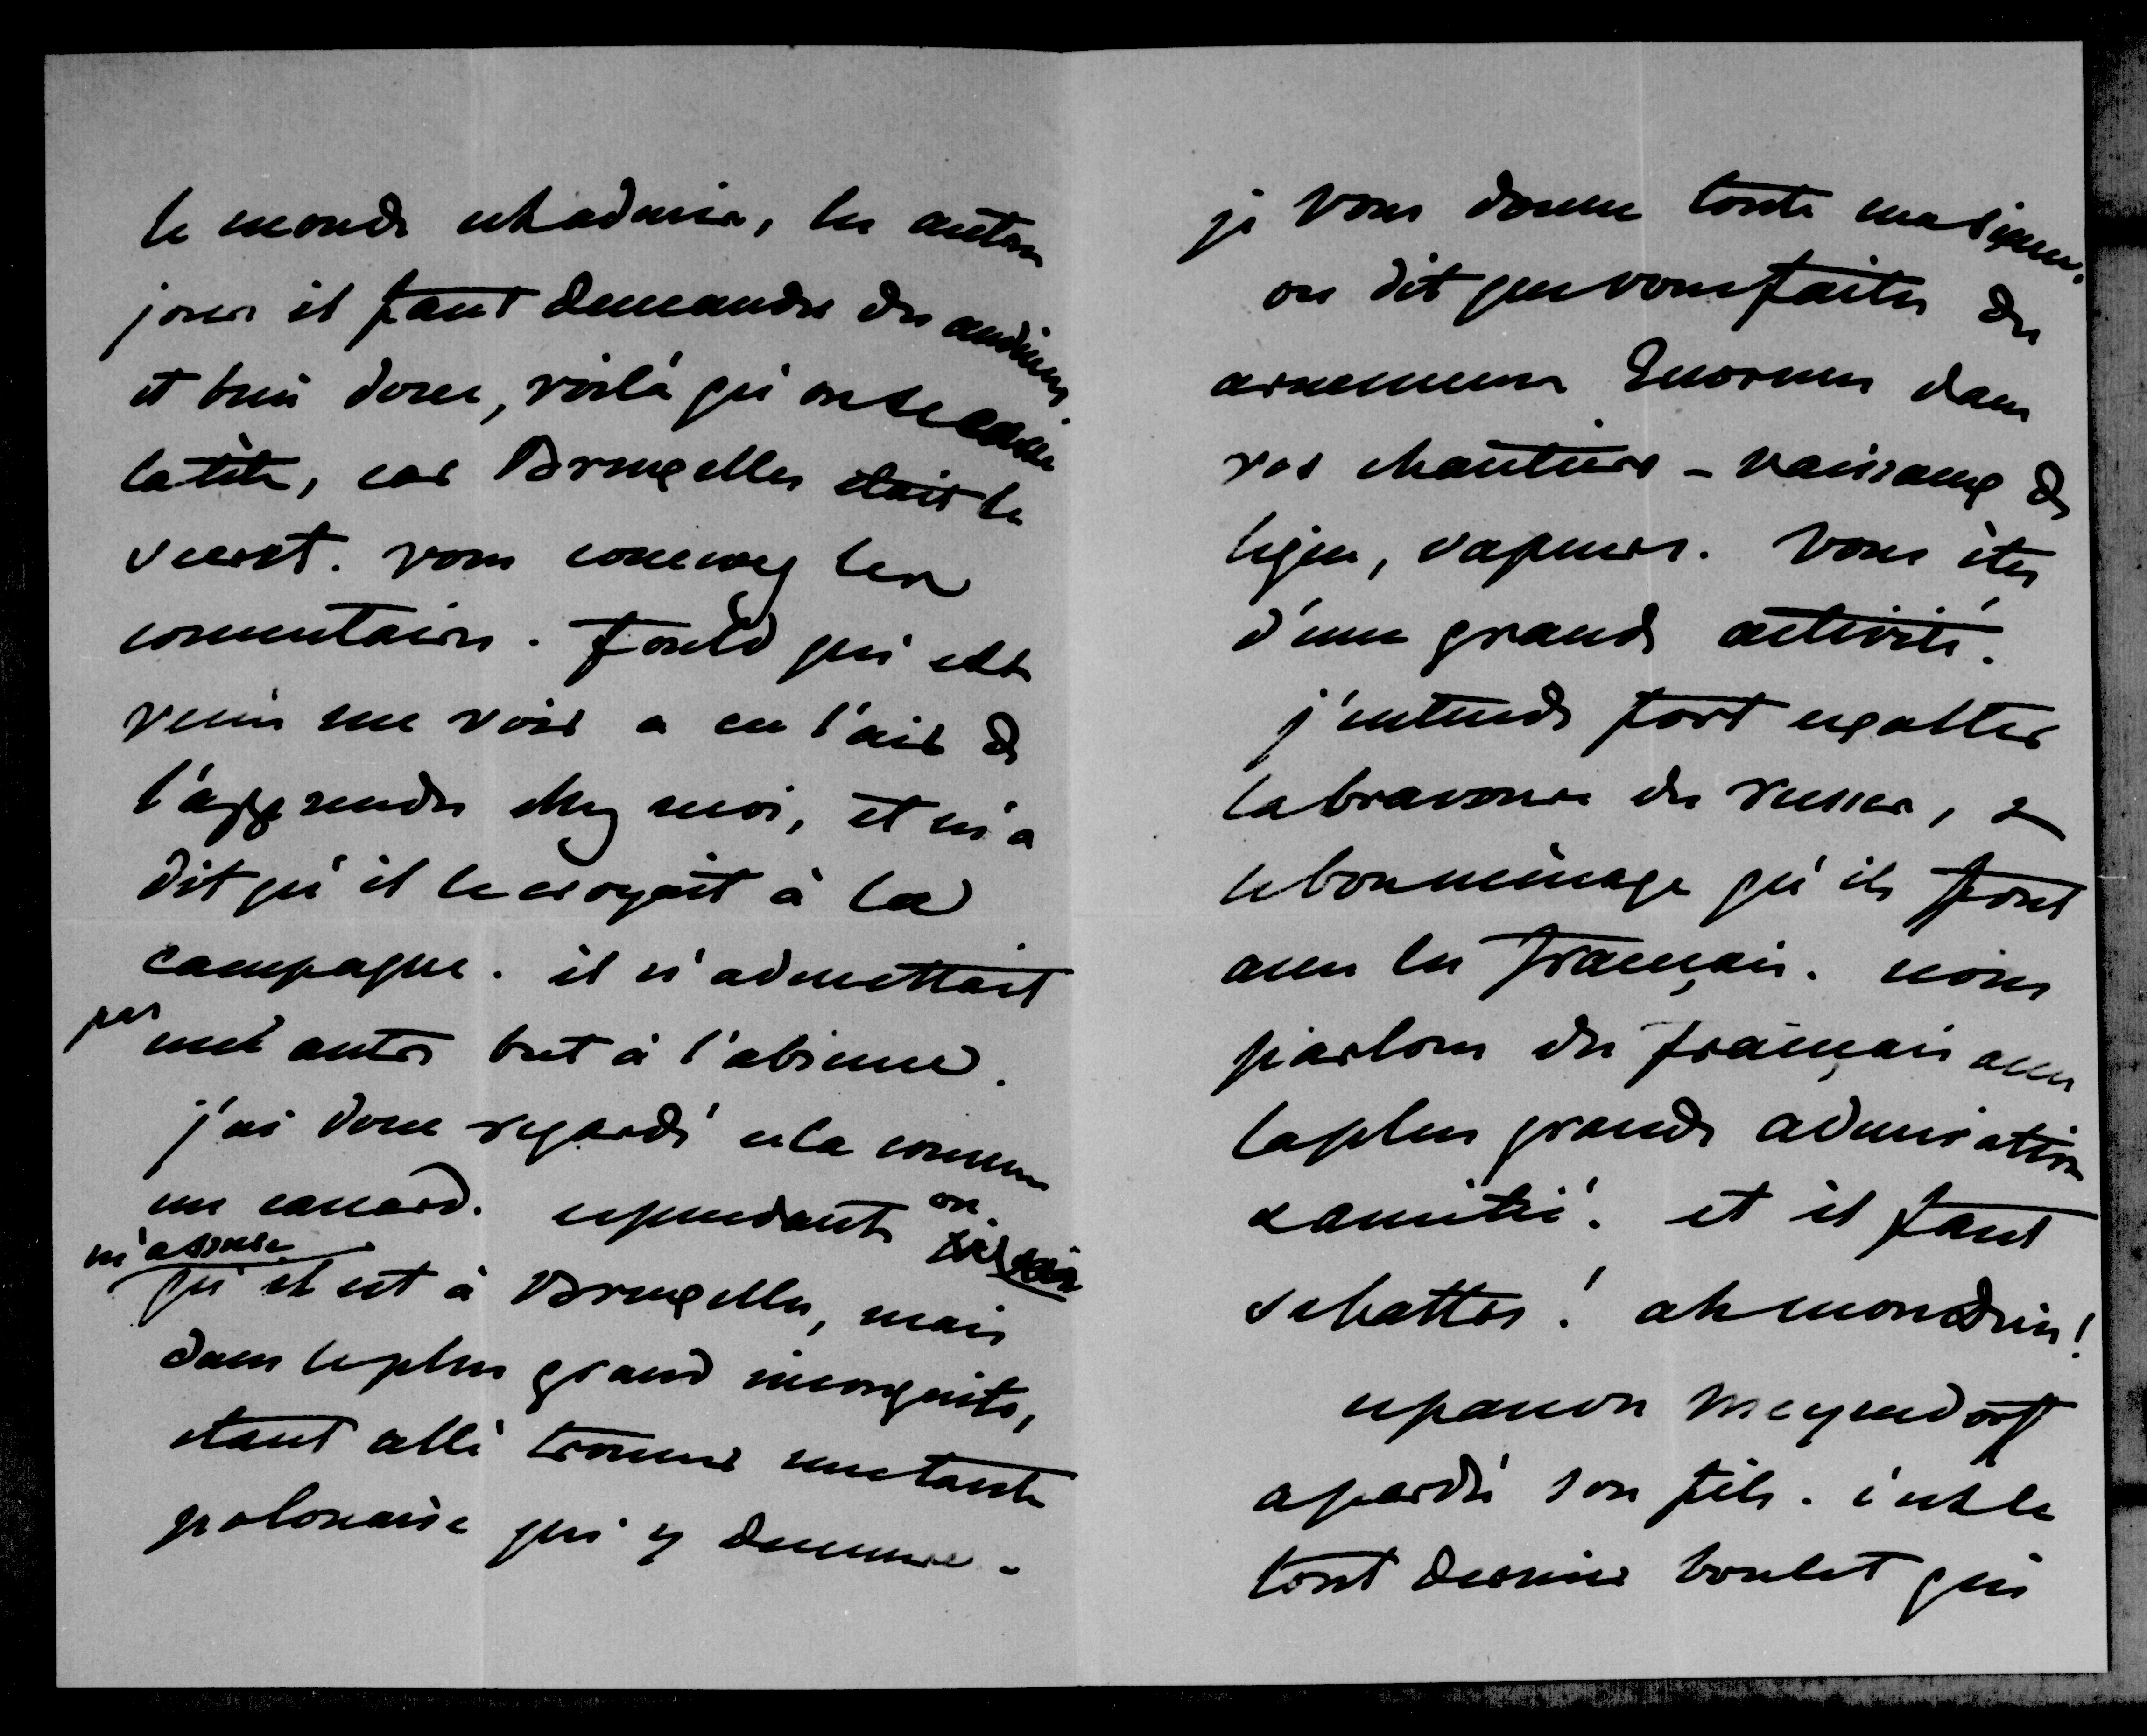 le monde est admis, les autres
jours il faut demander des audiences
et bien donc, voilà qu'on se casse
la tête, car Bruxelles était le
secret. vous concevez les
commentaires. Fould qui est
venu me voir a eu l'air de
l'apprendre chez moi, et m'a
dit qu'il le croyait à la
campagne. il n'admettait
pas
un autre but à l'absence.
j'ai donc regardé cela comme
un canard. cependant on
m'assure
qu'il est à Bruxelles, mais
dans le plus grand incognito,
étant allé trouver une tante
polonaise qui y demeure.
je vous donne toute ma science.
on dit que vous faites des
armemens Enormes dans
vos chantiers - vaisseaux de
ligne, vapeurs. Vous êtes
d'une grande activité.
j'entends fort exalter
la bravoure des russes, &
le bon ménage qu'ils font
avec les français. nous
parlons des français avec
la plus grande admiration
& amitié. et il faut
se battre! ah mon Dieu!
ce pauvre Meyendorff
a perdu son fils. c'est le
tout dernier boulet qui